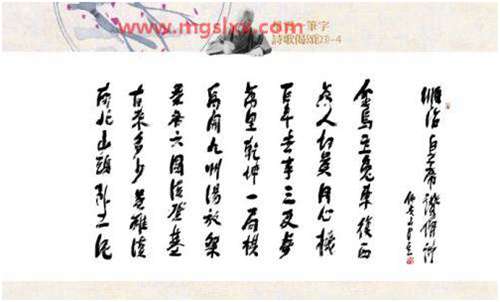 www.mgslxx.com
一筆字
詩歌偈頌(23)-4
順治皇帝讚僧詩
金烏玉兔東復西
為人切莫用心機
百年世事三更夢
萬里乾坤一局棋
禹開九州湯放桀
秦吞六國漢登基
古來多少英雄漢
南北山頭臥土泥